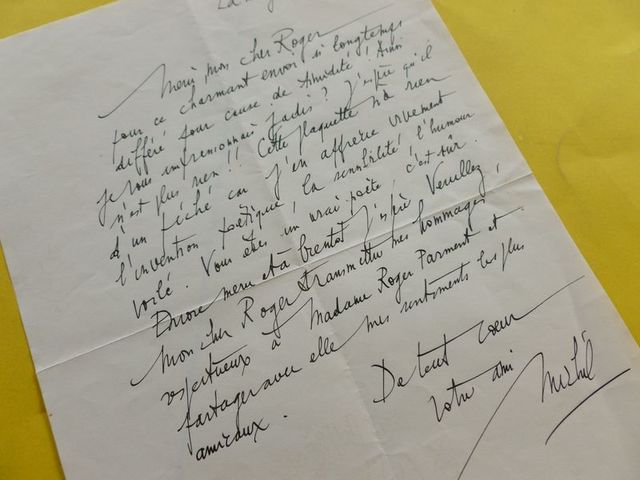 Merci, mon cher Roger
pour ce charmant envoi si longtemps
différé pour cause de timidité ! Ainsi
je vous impressionnais jadis ? J'espère qu'il
n'est plus rien !! Cette plaquette n'a rien
d'un péché car j'en apprécie vivement
l'invention poétique, la sensibilité, l'humour
voilé. Vous êtes un vrai poète, c'est sûr.
Encore merci et à bientôt j'espère. Veuillez,
mon cher Roger transmettre mes hommages
respectueux à Madame Roger Parment et
partager avec elle mes sentiments les plus
amicaux.
De tout coeur
votre ami
Michel